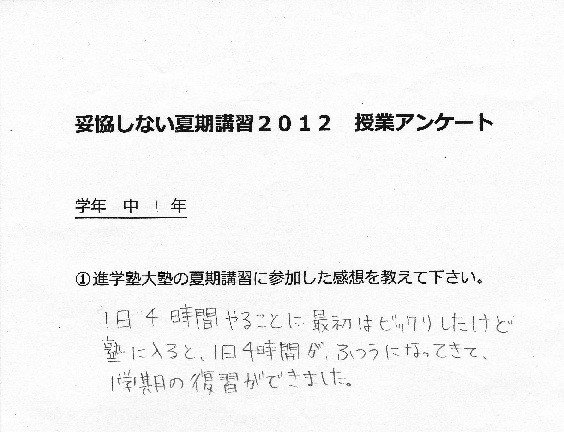 妥協しない夏期講習2012　授業アンケート
学年　中　1　年
①進学塾大塾の夏期講習に参加した感想を教えて下さい。
1日4時間やることに最初はビックリしたけど
塾に入ると、1日4時間が、ふつうになってきて、
1学期の復習ができました。